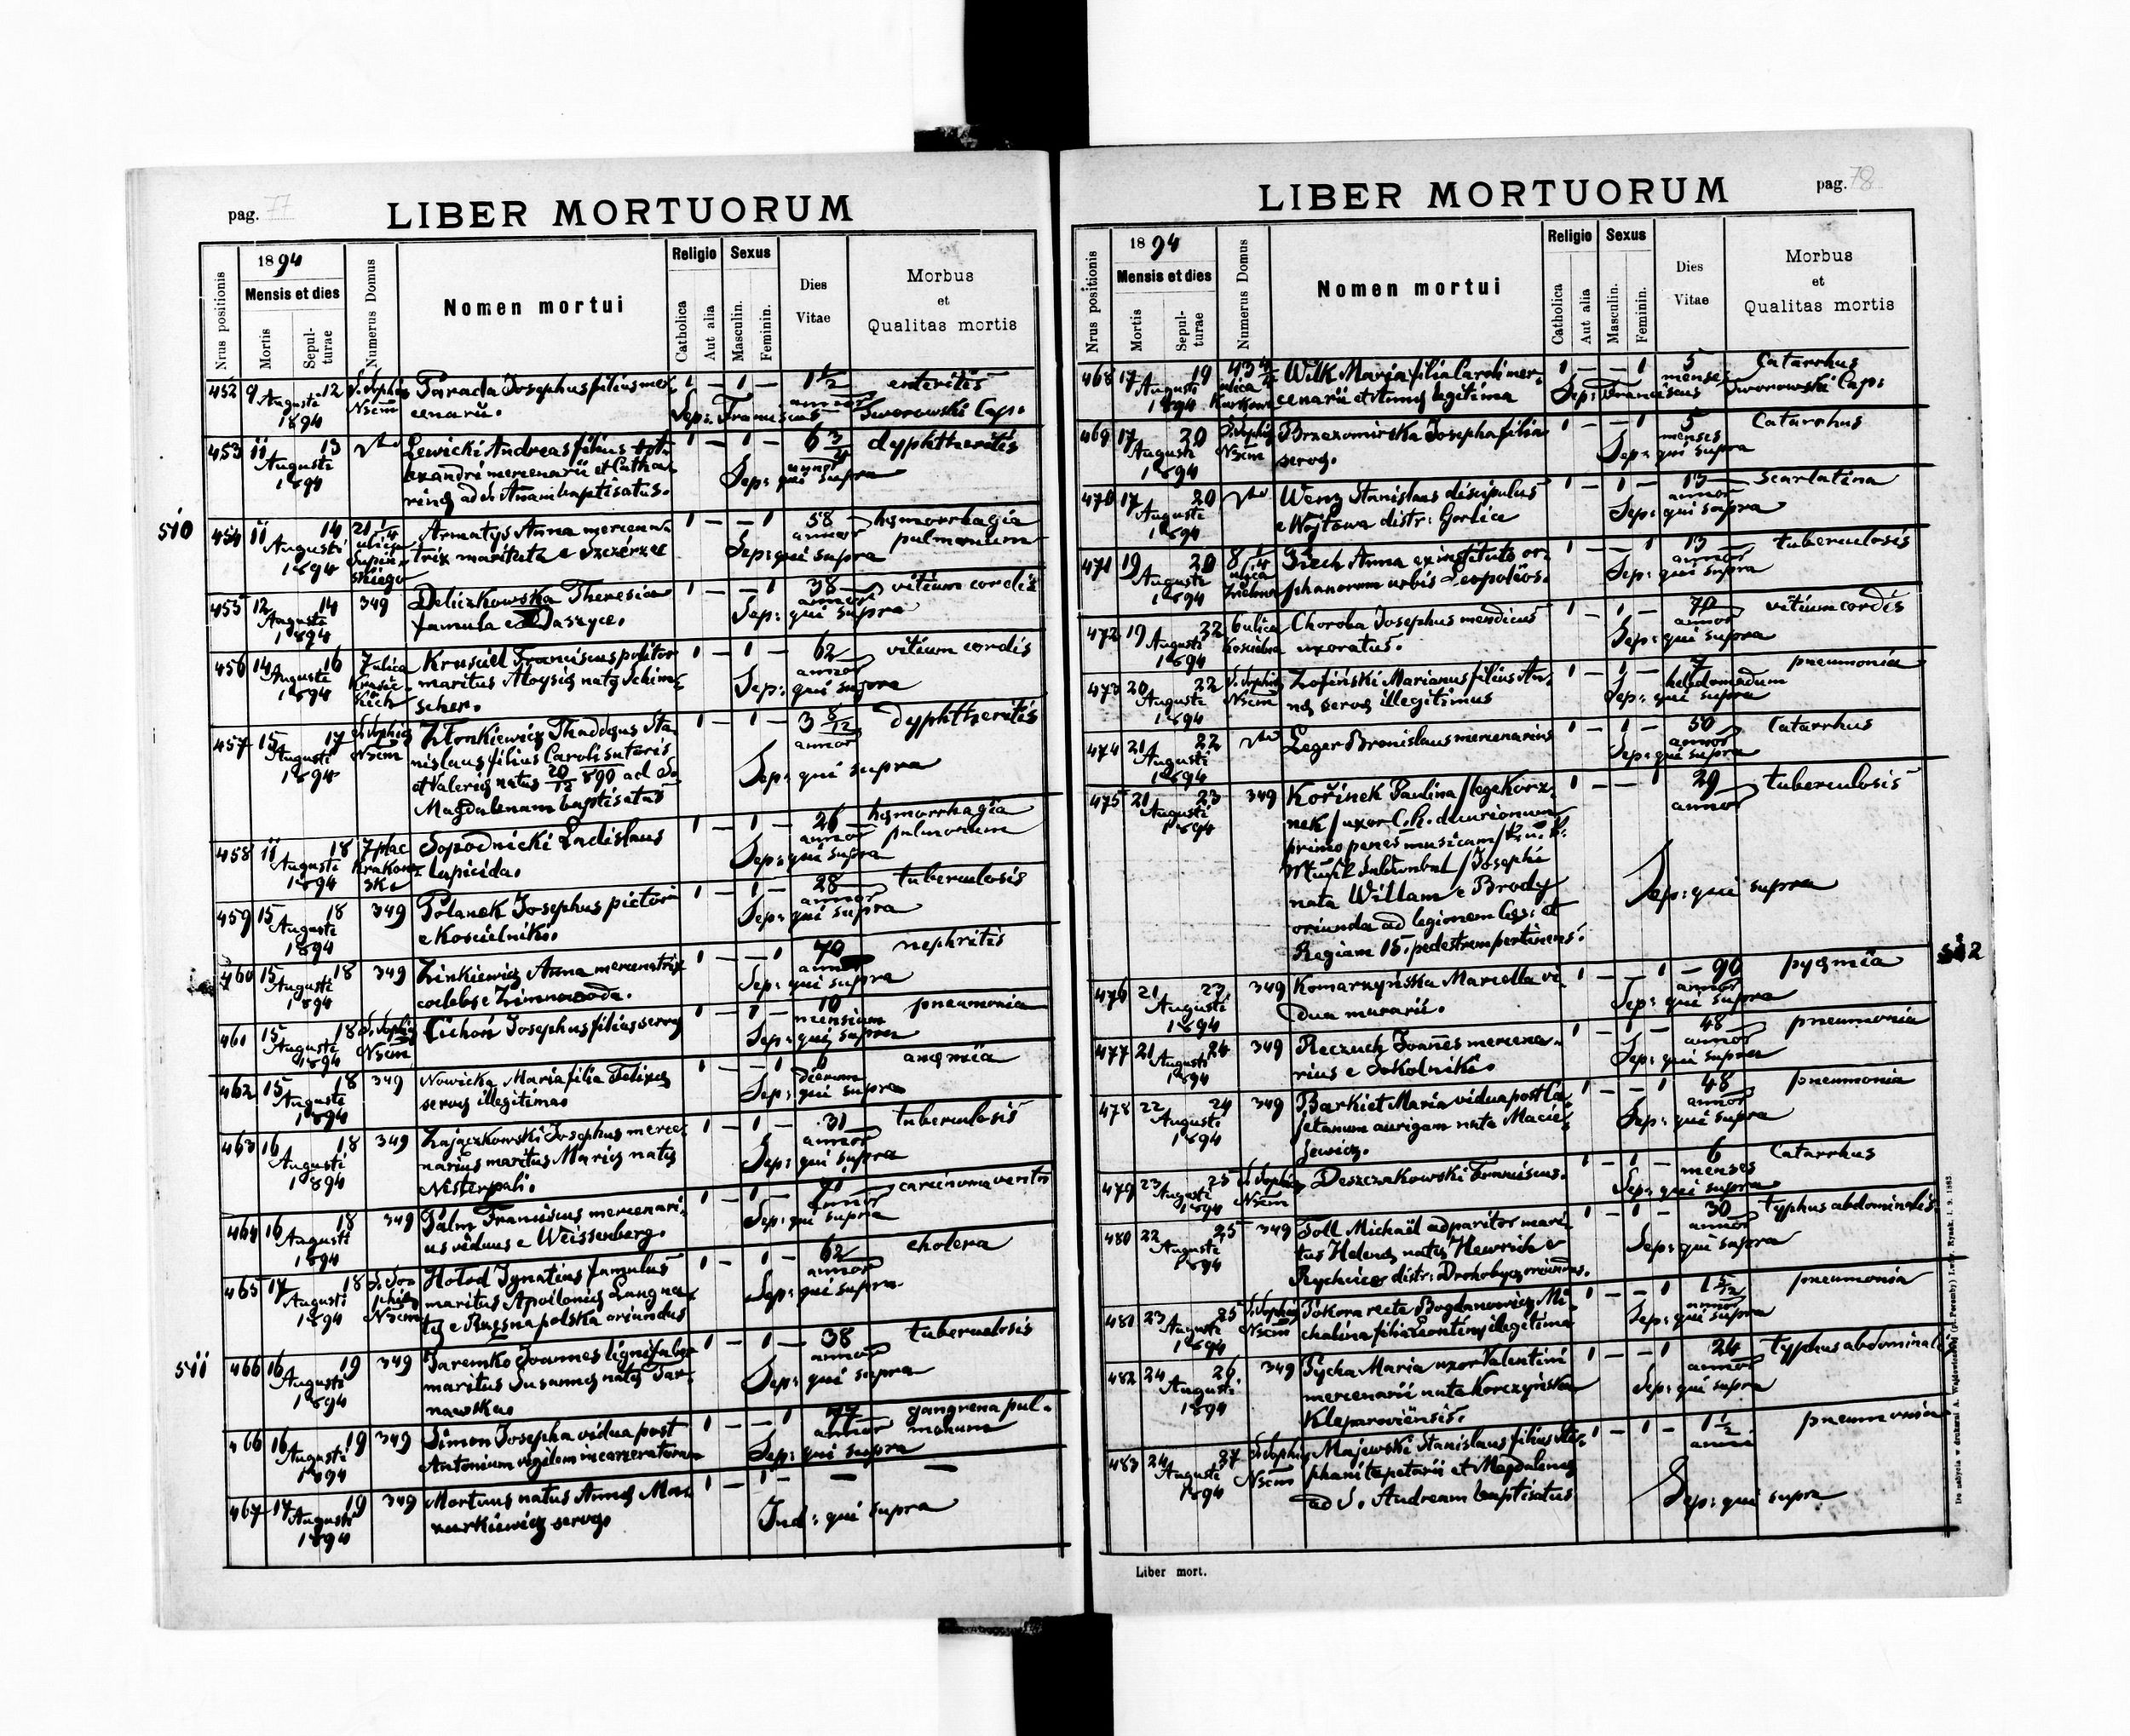 pag. 77
LIBER MORTUORUM
Nrus positionis
1894
Mensis et dies
Mortis
Sepul-
turae
Numerus Domus
Nomen mortui
Religio
Catholica
Aut alia
Sexus
Masculin.
Feminin.
Dies
Vitae
Morbus
et
Qualitas mortis
452 9 12 Augusti 1894 S. Sophia Nsem
Josephus filius mer-
cenarii.
1 — 1 — 1 1/2 annor enteritis
Sep: Franciscus Sworowski Cap.
453 11 13 Augusti 1894
Lewicki Andreas filius
exandri mercenarii et Catha-
rinę ad S. Annam baptisatus.
1 — 1 — 6 3/4 annor dyphtheritis
Sep: qui supra
510
454 11 14 Augusti 1894 21 1/4 ulica Supiń-
skiego
Armatys Anna mercena-
trix maritata e Szczérzec
1 — — 1 58 annor hęmorrhagia
pulmonum
Sep: qui supra
455 12 14 Augusti 1894 349
Deliczkowska Theresia
famula e Daszyce.
1 — — 1 38 annor vitium cordis
Sep: qui supra
456 14 16 Augusti 1894 7 ulica
Krusciel Franciscus politor
maritus Aloysię natę Schim-
scher.
1 — 1 — 62 annor vitium cordis
Sep: qui supra
457 15 17 Augusti 1894 S. Sophię Nsem
Złonkiewicz Thadęus Sta-
nislaus filius Caroli sutoris
et Valerię natus 20/12 890 ad S.
Magdalenam baptisatus
1 — 1 — 3 8/12 annor dyphtheritis
Sep: qui supra
458 11 18 Augusti 1894 7 plac Krakow-
ski
Sopodnicki Ladislaus
lapicida.
1 — 1 — 26 annor hęmorrhagia
pulmonum
Sep: qui supra
459 15 18 Augusti 1894 349
Polanek Josephus pictor
e Kościelniki.
1 — 1 — 28 annor tuberculosis
Sep: qui supra
460 15 18 Augusti 1894 349
Zinkiewicz Anna mercenatrix
coelebs e Zimnawoda.
1 — — 1 70 annor nephritis
Sep: qui supra
461 15 18 Augusti 1894 S. Sophię Nsem
Cichoń Josephus filius servę
1 — 1 — 10 mensium pneumonia
Sep: qui supra
462 15 18 Augusti 1894 349
Nowicka Maria filia Felixę
servę illegitima
1 — — 1 dierum anęmia
Sep: qui supra
463 16 18 Augusti 1894 349
Zajączkowski Josephus merce-
narius maritus Marię natę
Nisterpali.
1 — 1 — 31 annor tuberculosis
Sep: qui supra
464 16 18 Augusti 1894 349
Palm Franciscus mercenari-
us viduus e Weissenberg.
1 — 1 — 71 annor carcinoma ventri
Sep: qui supra
465 17 18 Augusti 1894 S. So-
phię Nsem
Hołod Ignatius famulus
maritus Apolonię Lang na-
tę e Ruzsnapolska oriundus
1 — 1 — 62 annor cholera
Sep: qui supra
511
466 16 19 Augusti 1894 349
Jaremko Joannes lignifaber
maritus Susannę natę Tar-
nawska
1 — 1 — 38 annor tuberculosis
Sep: qui supra
466 16 19 Augusti 1894 349
Simon Josepha vidua post
Antonium vigilem incarceratorum
1 — — 1 77 annor gangrena pul-
monum
Sep: qui supra
467 17 19 Augusti 1894 349
Mortuus natus Annę Mau-
servę
1 — 1 — — —
Ind: qui supra
pag. 78
LIBER MORTUORUM
Nrus positionis
1894
Mensis et dies
Mortis
Sepul-
turae
Numerus Domus
Nomen mortui
Religio
Catholica
Aut alia
Sexus
Masculin.
Feminin.
Dies
Vitae
Morbus
et
Qualitas mortis
468 17 19 Augusti 1894 ulica Kurkowa
Wilk Maria filia Caroli mer-
cenarii et legitima
1 — — 1 5 menses Catarrhus
Sep: Franciscus Sworowski Cap:
469 17 20 Augusti 1894 S. Sophię Nsem
Brzezomirska Josepha filia
servę.
1 — — 1 5 menses Catarrhus
Sep: qui supra
470 17 20 Augusti 1894
Wenz Stanislaus discipulus
e Wojtowa distr: Gorlice
1 — 1 — 13 annor Scarlatina
Sep: qui supra
471 19 20 Augusti 1894 8 1/4 ulica Zielona
Ziech Anna ex instituto or-
phanorum urbis Leopolios.
1 — — 1 13 annor tuberculosis
Sep: qui supra
472 19 22 Augusti 1894 6 ulica
Choroba Josephus mendicus
uxoratus.
1 — 1 — 70 annor vitium cordis
Sep: qui supra
473 20 22 Augusti 1894 S. Sophię Nsem
Zofiński Marianus filius An-
nę servę illegitimus
1 — 1 — 7 hebdomadum pneumonia
Sep: qui supra
474 21 22 Augusti 1894
Leger Bronislaus mercenarius
1 — 1 — 50 annor Catarrhus
Sep: qui supra
475 21 23 Augusti 1894 349
Kořinek Paulina /lege Korz-
nek/ uxor C. R. decurionum
primo penes musicam /K. u. K.
Josephi
nata Willam e Brody
oriunda ad legionem Cęs: et
Regiam 15. pedestrem pertinens.
1 — — 1 29 annor tuberculosis
Sep: qui supra
512
476 21 23 Augusti 1894 349
Komarzyńska Marcella vi-
dua murarii.
1 — — 1 — 90 annor pyęmia
Sep: qui supra
477 21 24 Augusti 1894 349
Reczuch Joannes mercena-
rius e Sokolniki.
1 — 1 — 48 annor pneumonia
Sep: qui supra
478 22 24 Augusti 1894 349
Barkiet Maria vidua post Ca-
jetanum aurigam nata Maciè-
jewicz.
1 — — 1 48 annor pneumonia
Sep: qui supra
479 23 25 Augusti 1894 S. Sophię Nsem
Deszczakowski Franciscus.
1 — 1 — 6 menses Catarrhus
Sep: qui supra
480 22 25 Augusti 1894 349
Toll Michaël adparitor mari-
tus Helenę natę Hewrich e
Rychcice distr: Drohobycz oriundus.
1 — 1 — 30 annor typhus abdominalis
Sep: qui supra
481 23 25 Augusti 1894 S. Sophię Nsem
Sokora recte Bogdanowicz Mi-
chalina filia Leontinę illegitima
1 — — 1 pneumonia
Sep: qui supra
482 24 26 Augusti 1894 349
Pycha Maria uxor Valentini
mercenarii nata Korczyńska
Kleparoviensis.
1 — — 1 24 annor typhus abdominalis
Sep: qui supra
483 24 27 Augusti 1894 S. Sophię Nsem
Majewski Stanislaus filius Ste-
phani tapetarii et Magdalenę
ad S. Andream baptisatus
1 — 1 — 1 1/2 anni pneumonia
Sep: qui supra
Liber mort.